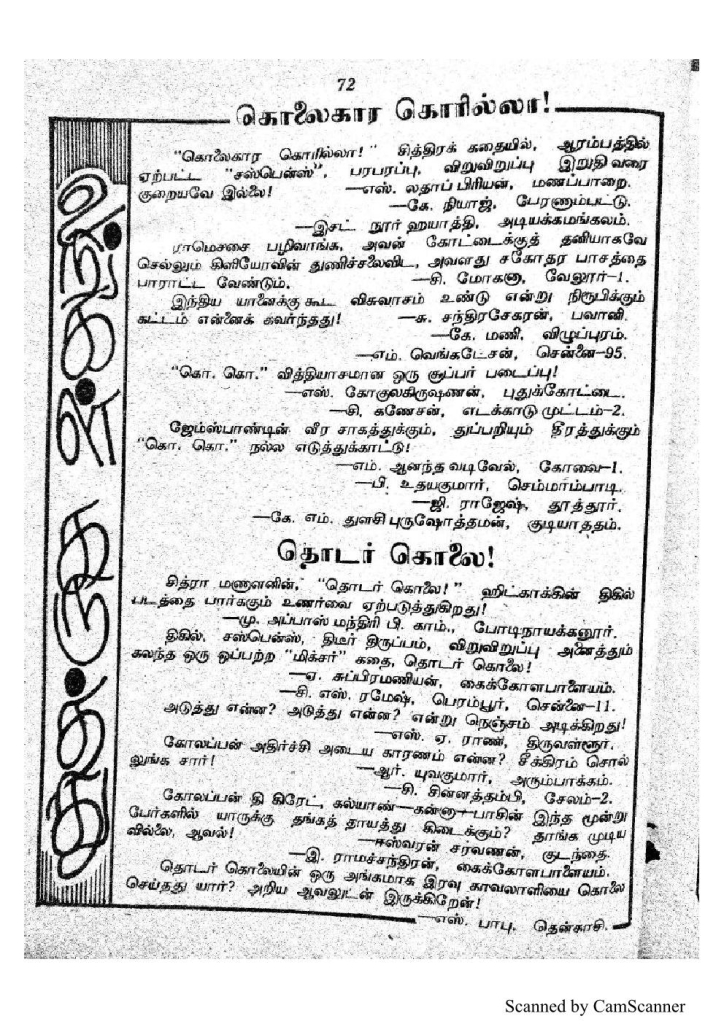 72
கொலைகார கொரில்லா!
"கொலைகார கொரில்லா!" சித்திரக் கதையில், ஆரம்பத்தில்
ஏற்பட்ட "சஸ்பென்ஸ்", பரபரப்பு, விறுவிறுப்பு இறுதி வரை
குறையவே இல்லை! —எஸ். லதாப் பிரியன், மணப்பாறை.
—கே. நியாஜ், பேரணும்பட்டு.
—இசட். நூர் ஹயாத்தி, அடியக்கமங்கலம்.
ராமெசசை பழிவாங்க, அவன் கோட்டைக்குத் தனியாகவே
செல்லும் கிளியோவின் துணிச்சலைவிட, அவளது சகோதர பாசத்தை
பாராட்ட வேண்டும். —சி. மோகனா, வேலூர்-1.
இந்திய யானைக்கு கூட விசுவாசம் உண்டு என்று நிரூபிக்கும்
கட்டம் என்னைக் கவர்ந்தது! —சு. சந்திரசேகரன், பவானி.
—கே. மணி, விழுப்புரம்.
—எம். வெங்கடேசன், சென்னை-95.
"கொ. கொ." வித்தியாசமான ஒரு சூப்பர் படைப்பு!
—எஸ். கோகுலகிருஷணன், புதுக்கோட்டை.
—சி. கணேசன், எடக்காடு முட்டம்-2.
ஜேம்ஸ்பாண்டின் வீர சாகத்துக்கும், துப்பறியும் தீரத்துக்கும்
"கொ. கொ." நல்ல எடுத்துக்காட்டு!
—எம். ஆனந்த வடிவேல், கோவை-1.
—பி. உதயகுமார், செம்மாம்பாடி.
—ஜி. ராஜேஷ், தூத்தூர்.
—கே. எம். துளசி புருஷோத்தமன், குடியாததம்.
தொடர் கொலை!
சித்ரா மணாளனின், "தொடர் கொலை!" ஹிட்காக்கின் திகில்
படத்தை பார்ககும் உணர்வை ஏற்படுத்துகிறது!
—மு. அப்பாஸ் மந்திரி பி. காம்., போடிநாயக்கனூர்.
திகில், சஸ்பென்ஸ், திடீர் திருப்பம், விறுவிறுப்பு அனைத்தும்
கலந்த ஒரு ஒப்பற்ற "மிக்சர்" கதை, தொடர் கொலை!
—ஏ. சுப்பிரமணியன், கைக்கோளபாளையம்.
—சி. எஸ். ரமேஷ், பெரம்பூர், சென்னை-11.
அடுத்து என்ன? அடுத்து என்ன? என்று நெஞ்சம் அடிக்கிறது!
—எஸ். ஏ. ராணி, திருவள்ளூர்.
கோலப்பன் அதிர்ச்சி அடைய காரணம் என்ன? சீக்கிரம் சொல்
லுங்க சார்! —ஆர். யுவகுமார், அரும்பாக்கம்.
—சி. சின்னத்தம்பி, சேலம்-2.
கோலப்பன் தி கிரேட், கல்யாண்—கண்ணா—பாசின் இந்த மூன்று
பேர்களில் யாருக்கு தங்கத் தாயத்து கிடைக்கும்? தாங்க முடிய
வில்லை, ஆவல்! —ஈஸ்வரன் சரவணன், குடந்தை.
—இ. ராமச்சந்திரன், கைக்கோளபாளையம்.
தொடர் கொலையின் ஒரு அங்கமாக இரவு காவலாளியை கொலை
செய்தது யார்? அறிய ஆவலுடன் இருக்கிறேன்!
—எஸ். பாபு, தென்காசி.
Scanned by CamScanner